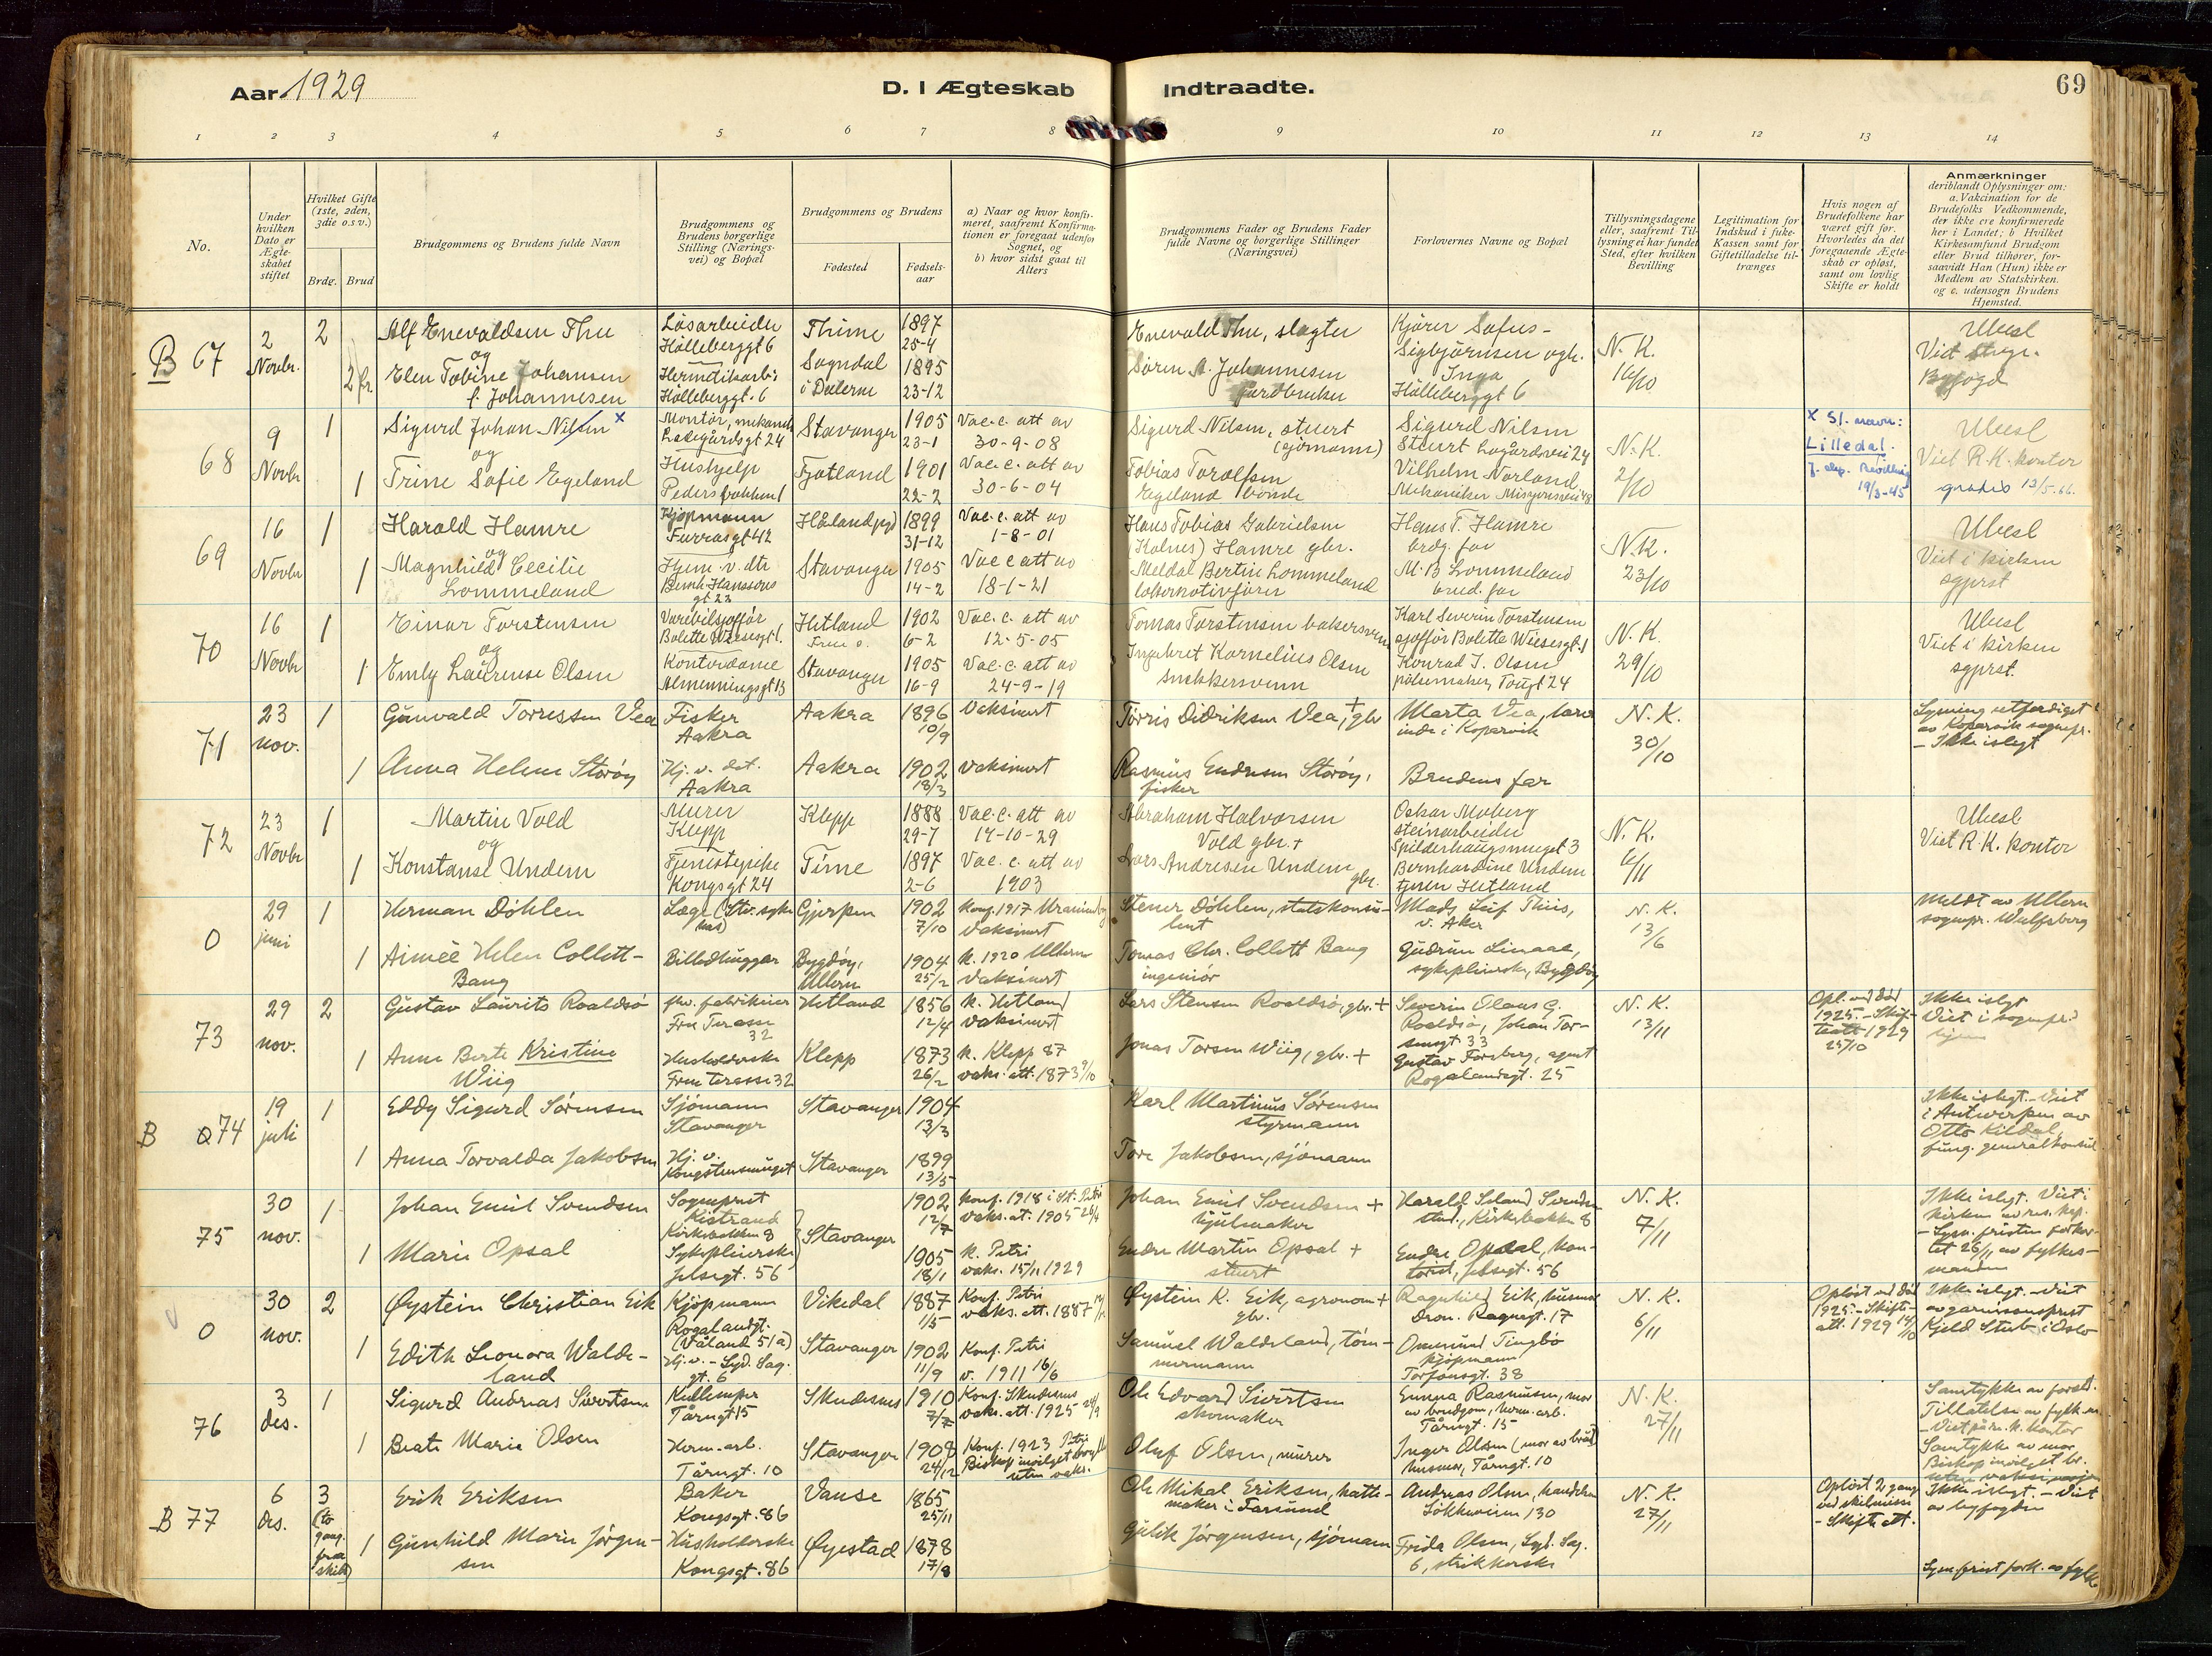 Aar 1929
D. I Ægteskab
Indtraadte.
69
1 2 3 4 5 6 7 8 9 10 11 12 13 14
No.
Under hvilken Dato er Ægteskabet stiftet
Hvilket Gifte (1ste, 2den, 3die o.s.v.)
Brdg. Brud
Brudgommens og Brudens fulde Navn
Brudgommens og Brudens borgerlige Stilling (Næringsvei) og Bopæl
Brudgommens og Brudens
Fødested
Fødselsaar
a) Naar og hvor konfirmeret, saafremt Konfirmationen er foregaat udenfor Sognet, og b) hvor sidst gaat til Alters
Brudgommens Fader og Brudens Fader fulde Navne og borgerlige Stillinger (Næringsvei)
Forlovernes Navne og Bopæl
Tillysningsdagene eller, saafremt Tillysning ei har fundet Sted, efter hvilken Bevilling
Legitimation for Indskud i fuke-Kassen samt for Giftetilladelse tiltrænges
Hvis nogen af Brudefolkene har været gift før. Hvorledes da det foregaaende Ægteskab er opløst, samt om lovlig Skifte er holdt
Anmærkninger
deriblandt Oplysninger om: a. Vakcination for de Brudefolks Vedkommende, der ikke ere konfirmerede her i Landet; b Hvilket Kirkesamfund Brudgom eller Brud tilhører, forsaavidt Han (Hun) ikke er Medlem av Statskirken. og c. udensogn Brudens Hjemsted.
B 67 2 Novbr. 2 Alf Enevaldsen Thu Løsarbeider Hølleberggt 6 Thime 1897 25-4 Enevald Thu, slagter Kjører Sofus Sigbjørnsen ogh. N.K. 16/10 Ubesl
og
Elen Tobine Johansen f. Johannesen Hermetikarb. Hølleberggt. 6 Sogndal i Dalerne 1895 23-12 Søren A. Johannesen jordbruker Inga Hølleberggt 6 Viet Byfogd
68 9 Novbr 1 Sigurd Johan Nilsen x Montør, mekanik 24 Stavanger 1905 23-1 Vac. c. att av 30-9-08 Sigurd Nilsen, stuert (sjømann) Sigurd Nilsen Stuert Lagårdsvei 24 N.K. 2/10 x Sl. navn: Lilledal. 19/3-45 Ubesl
og
1 Trine Sofie Egeland Hushjelp Fjotland 1901 22-2 Vac. c. att av 30-6-04 Tobias Torolfsen Egeland bonde Vilhelm Norland Mekaniker Misjonsvei 48 Viet R.K. kontor gradis 12/5-66.
69 16 Novbr 1 Harald Hamre Kjøpmann 42 Håland 1899 31-12 Vac. c. att av 1-8-01 Hans Tobias Gabrielsen (Kolnes) Hamre gbr. Hans T. Hamre brdg. far N.K. 23/10 Ubesl
og
1 Magnhild Cecilie Lommeland Hjem. v. dtr Bernh. Hanssens gt 23 Stavanger 1905 14-2 Vac c att av 18-1-21 Meldal Bertin Lommeland lokomotivfører M. B Lommeland brud. far Viet i kirken sgprst
70 16 Novbr 1 Einar Torstensen Varebilsjoffør Bolette Wiesesgt 1. Hetland 1902 6-2 Vac. c. att av 12-5-05 Tomas Torstensen bakersvenn Karl Severin Torstensen sjoffør Bolette Wiesesgt. 1 N.K. 29/10 Ubesl
og
1 Emly Laurense Olsen Kontordame Almenningsgt 13 Stavanger 1905 16-9 Vac. c. att av 24-9-19 Ingebret Kornelius Olsen snekkersvenn Konrad I. Olsen pølsemaker, 24 Viet i kirken sgprst.
71 23 nov. 1 Gunvald Torressen Vea Fisker Aakra Aakra 1896 10/9 Vaksinert Torris Didriksen Vea, + gbr Marta Vea, lærerinde i Kopervik N.K. 30/10 Lysning utferdiget av Kopervik sognepr. - Ikke islegt
1 Anna Helene Storøy Hj. v. dat. Aakra Aakra 1902 18/3 vaksinert Rasmus Endresen Storøy, fisker Brudens far
72 23 Novbr 1 Martin Vold Murer Klepp Klepp 1888 29-7 Vac. c. att av 14-10-29 Abraham Halvorsen Vold gbr. + Oskar Moberg steinarbeider Spilderhaugsmuget 3 N.K. 6/11 Ubesl
og
1 Konstanse Undem Tjenestepike Kongsgt 24 Time 1897 2-6 Vac. c. att av 1903 Lars Andresen Undem gbr. Bernhardine Undem Hetland Viet R.K. kontor
0 29 juni 1 Herman Döhlen Læge (Stv. sykehus) Gjerpen 1902 7/10 Konf. 1917 vaksinert Stener Döhlen, statskonsulent Mads Leif Thiis, v. Aker N.K. 13/6 meldt av Ullern sognepr. Wulfsberg
1 Aimée Helen Collett-Bang Billedhugger Bygdøy, Ullern 1904 25/2 k. 1920 Ullern vaksinert Tomas Chr. Collett Bang ingeniör Gudrun Linaae, sykepleierske, Bygdøy
73 29 nov. 2 Gustav Laurits Roaldsø fhv. fabrikeier Frue Terasse 32 Hetland 1856 12/4 k. Hetland vaksinert Lars Stensen Roaldsø, gbr. + Severin Olaus G. Roaldsø, Johan Torsensgt 33 N.K. 13/11 Opl. ved død 1925. - Skifteatt 1929 25/10 Ikke islegt Viet i sognepr.s hjem
1 Anne Berte Kristine Wiig Husholderske Frue terasse 32 Klepp 1873 26/2 k. Klepp 87 vaks. att. 1873 9/10 Jonas Torsen Wiig, gbr. + Gustav Forsberg, agent Rogalandsgt. 25
B 0 74 19 juli 1 Eddy Sigurd Sørensen Sjømann Stavanger Stavanger 1904 13/3 Karl Martinus Sørensen styrmann Ikke islegt. - Viet i Antwerpen av Otto Kildal, fung. generalkonsul
1 Anna Torvalda Jakobsen Hj. v. Kongstensmuget Stavanger 1899 13/5 Tore Jakobsen, sjømann
75 30 nov. 1 Johan Emil Svendsen Sogneprest Kistrand Kirkebakken 8 Stavanger 1902 12/7 konf. 1918 i St. Petri vaks. at. 1905 26/4 Johan Emil Svendsen + hjulmaker Harald Svendsen stud., Kirkebakken 8 N.K. 7/11 Ikke islegt. Viet i kirken av res. kap. - Lysn. fristen forkortet 26/11 av fylkesmanden
1 Marie Opsal Sykepleierske Jelsegt. 56 1905 18/1 k. Petri vaks. 15/11 1929 Endre Martin Opsal + stuert Endre Opsal, kontorist, Jelsegt. 56
0 30 nov. 2 Øystein Christian Eik Kjøpmann Rogalandgt. (Våland 51a) Vikedal 1887 1/5 Konf. Petri vaks. att. 1887 Øystein K. Eik, agronom + gbr. Ragnhild Eik, Dron. Ragnegt. 17 N.K. 6/11 Opløst ved død 1925. - Skifte-att. 1929 Ikke islegt. - Viet av garnisonsprest Kjeld Stub i Oslo
1 Edith Leonora Waldeland Hj. v. - Lyd. Sag. gt. 6 Stavanger 1902 11/9 Konf. Petri v. 1911 16/6 Samuel Waldeland, tømmermann Ommund Tingbø kjøpmann Torfæusgt. 38
76 3 des. 1 Sigurd Andreas Sivertsen Kullemper Tårngt 15 Skudesnes 1910 7/2 Konf. Skudesnes vaks. att. 1925 Ole Edvard Sivertsen skomaker Emma Rasmussen, mor av brudgom, herm. arb. Tårngt. 15 N.K. 27/11 Samtykke av foreld. Tillatelse av fylk.m. - Viet på r. k. kontor
1 Beate Marie Olsen Herm. arb. Tårngt. 10 Stavanger 1908 24/12 Konf. 1923 Petri Biskop innvilget uten vaks. Oluf Olsen, murer Inger Olsen (mor av brud) Tårngt. 10 Samtykke av mor Biskop innvilget
B 77 6 des. 3 (to gang. fra skilt) Erik Eriksen Baker Kongsgt. 86 Vanse 1865 25/11 Ole Mikal Eriksen, hattemaker i Farsund Andreas Olsen, Løkkeveien 130 N.K. 27/11 Opløst 2 gang ved skilsmisse - Skifte att. Ikke islegt. - Viet av byfogden
1 Gunhild Marie Jørgensen Husholderske Kongsgt. 86 Øyestad 1878 17/8 Gulik Jørgensen, sjømann Frida Olsen, Lyd. Sag. 6, strikkerske Lysn. frist fork. av fylk